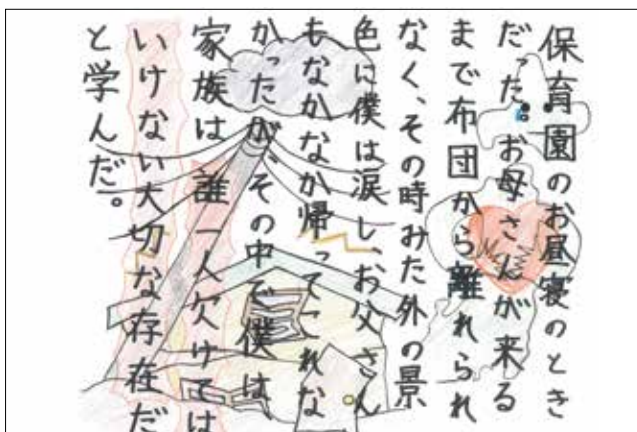 保育園のお昼寝のとき
だった。お母さんが来る
まで布団から離れられ
なく、その時みた外の景
色に僕は涙し、お父さん
もなかなか帰ってこれな
かったが、その中で僕は、
家族は誰一人欠けては
いけない大切な存在だ
と学んだ。